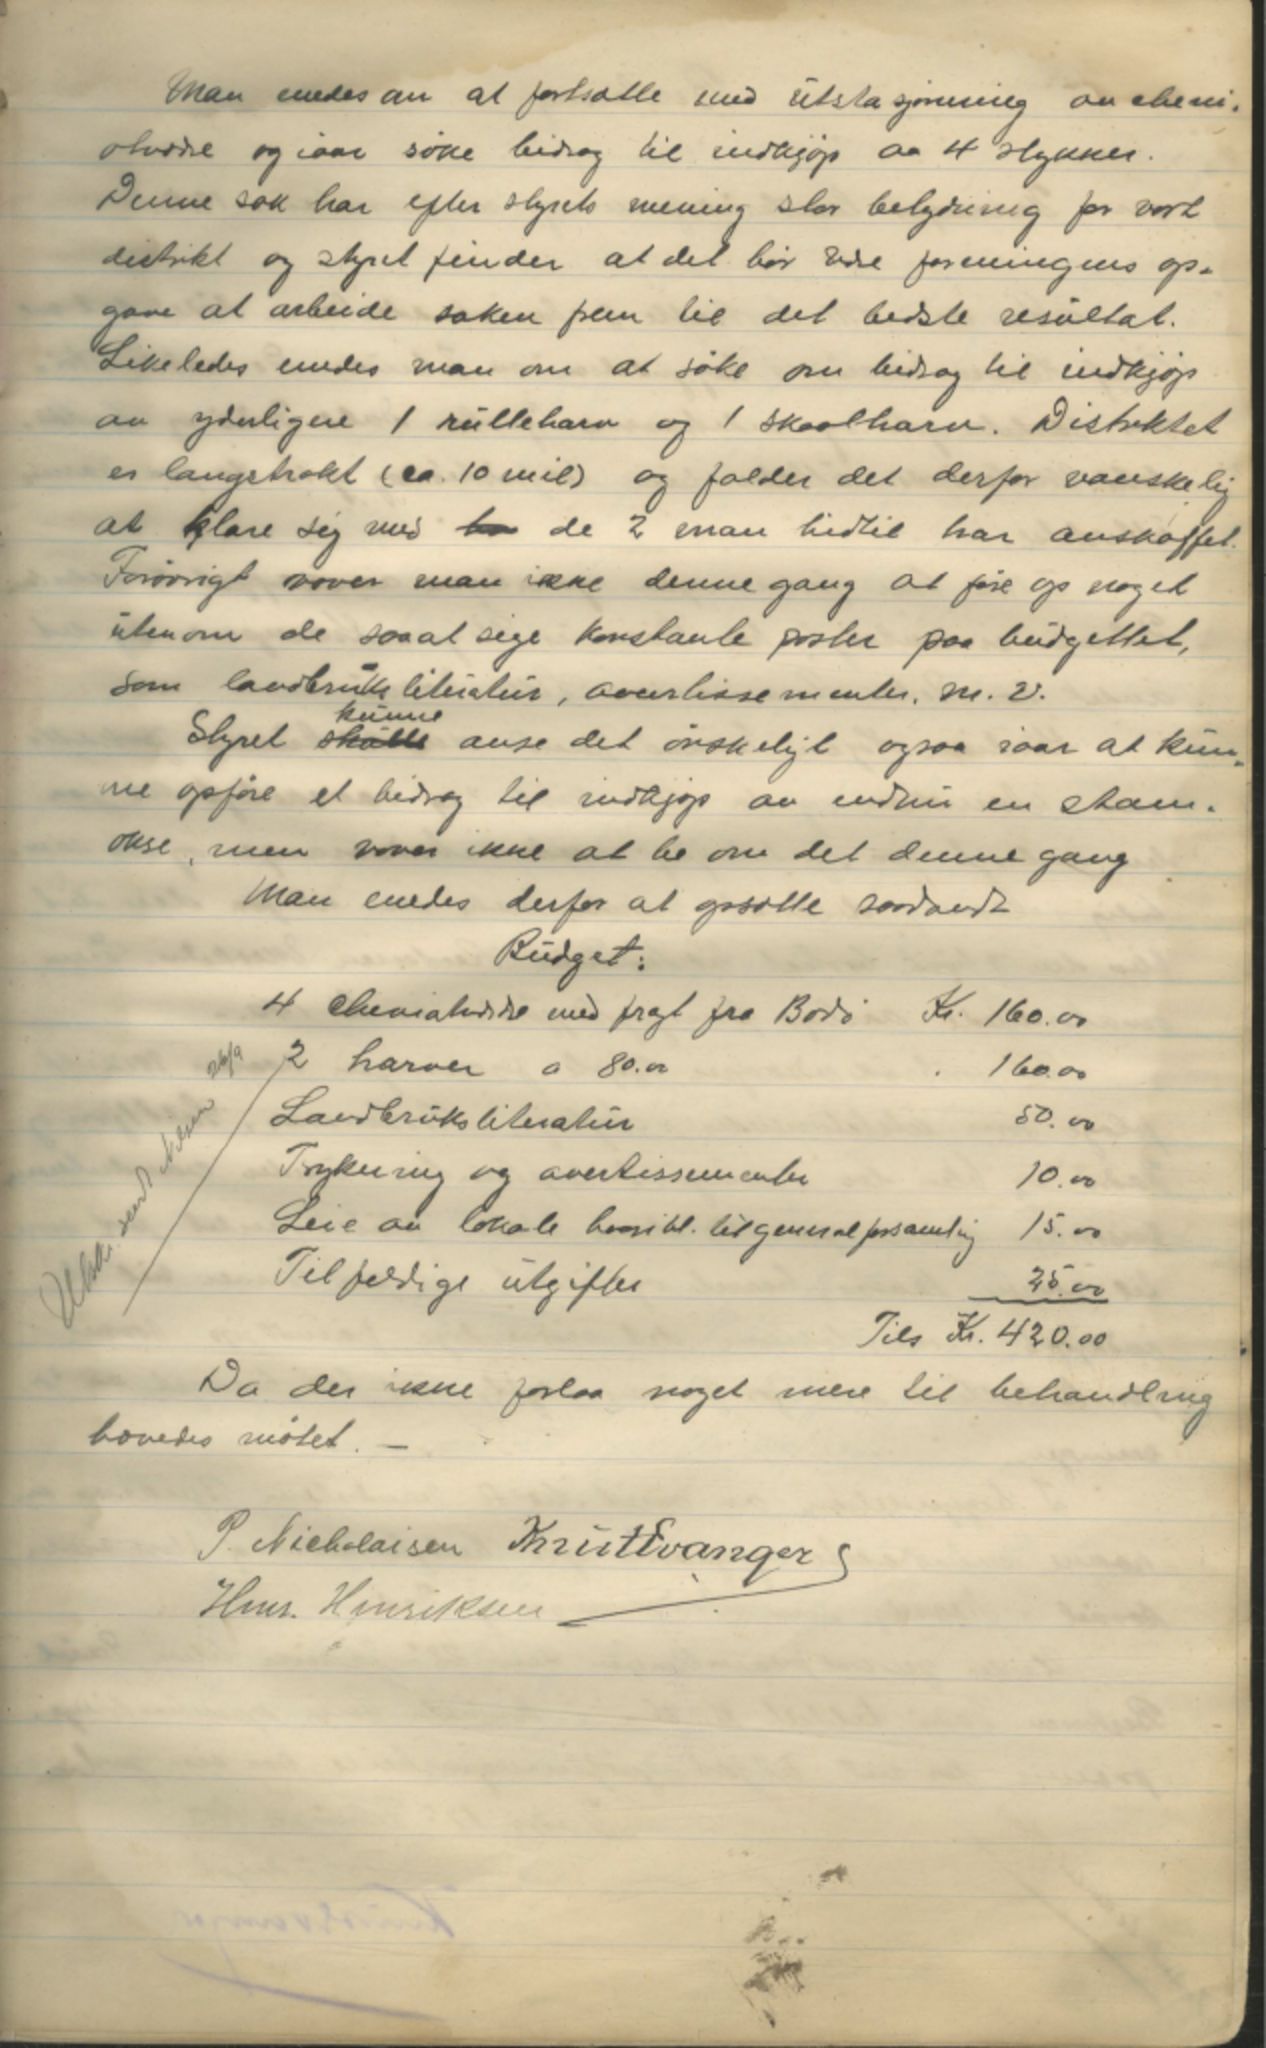 Man enedes om at fortsætte med utstasjonering av chevi-
otvædre og iaar søke bidrag til indkjøp av 4 stykker.
Denne sak har efter styrets mening stor betydning for vort
distrikt og styret finder at det bør være foreningens op-
gave at arbeide saken frem til det bedste resultat.
Likeledes enedes man om at søke om bidrag til indkjøp
av yderligere 1 rulleharv og 1 skaalharv. Distriktet
er langstrakt (ca. 10 mil) og falder det derfor vanskelig
at klare sig med de 2 man hidtil har anskaffet.
Forøvrigt vover man ikke denne gang at føre op noget
utenom de saaat sige konstante poster paa budgettet,
som landbruksliteratur, avertissementer, m. v.
Styret kunne anse det ønskeligt ogsaa iaar at kun-
ne opføre et bidrag til indkjøp av endnu en stam-
okse, men vover ikke at be om det denne gang
Man enedes derfor at opsætte saadandt
Budget:
4 cheviotvædre med fragt fra Bodø Kr. 160.00
2 harver a 80.00 " 160.00
Landbruksliteratur 50.00
Trykning og avertissementer 10.00
Leie av lokale til generalforsamling 15.00
Tilfeldige utgifter 25.00
Tils Kr. 420.00
Utskr. sendt Nilsen 26/9
Da der ikke forlaa noget mere til behandling
hævedes møtet. —
P. Nicholaisen Knut Evanger
Henr. Henriksen